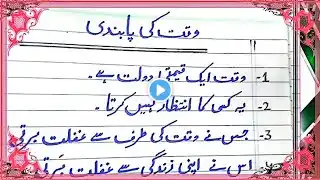 وقت کی پابندی
1- وقت ایک قیمتی دولت ہے۔
2- یہ کسی کا انتظار نہیں کرتا۔
3- جس نے وقت کی طرف سے غفلت برتی
اس نے اپنی زندگی سے غفلت برتی